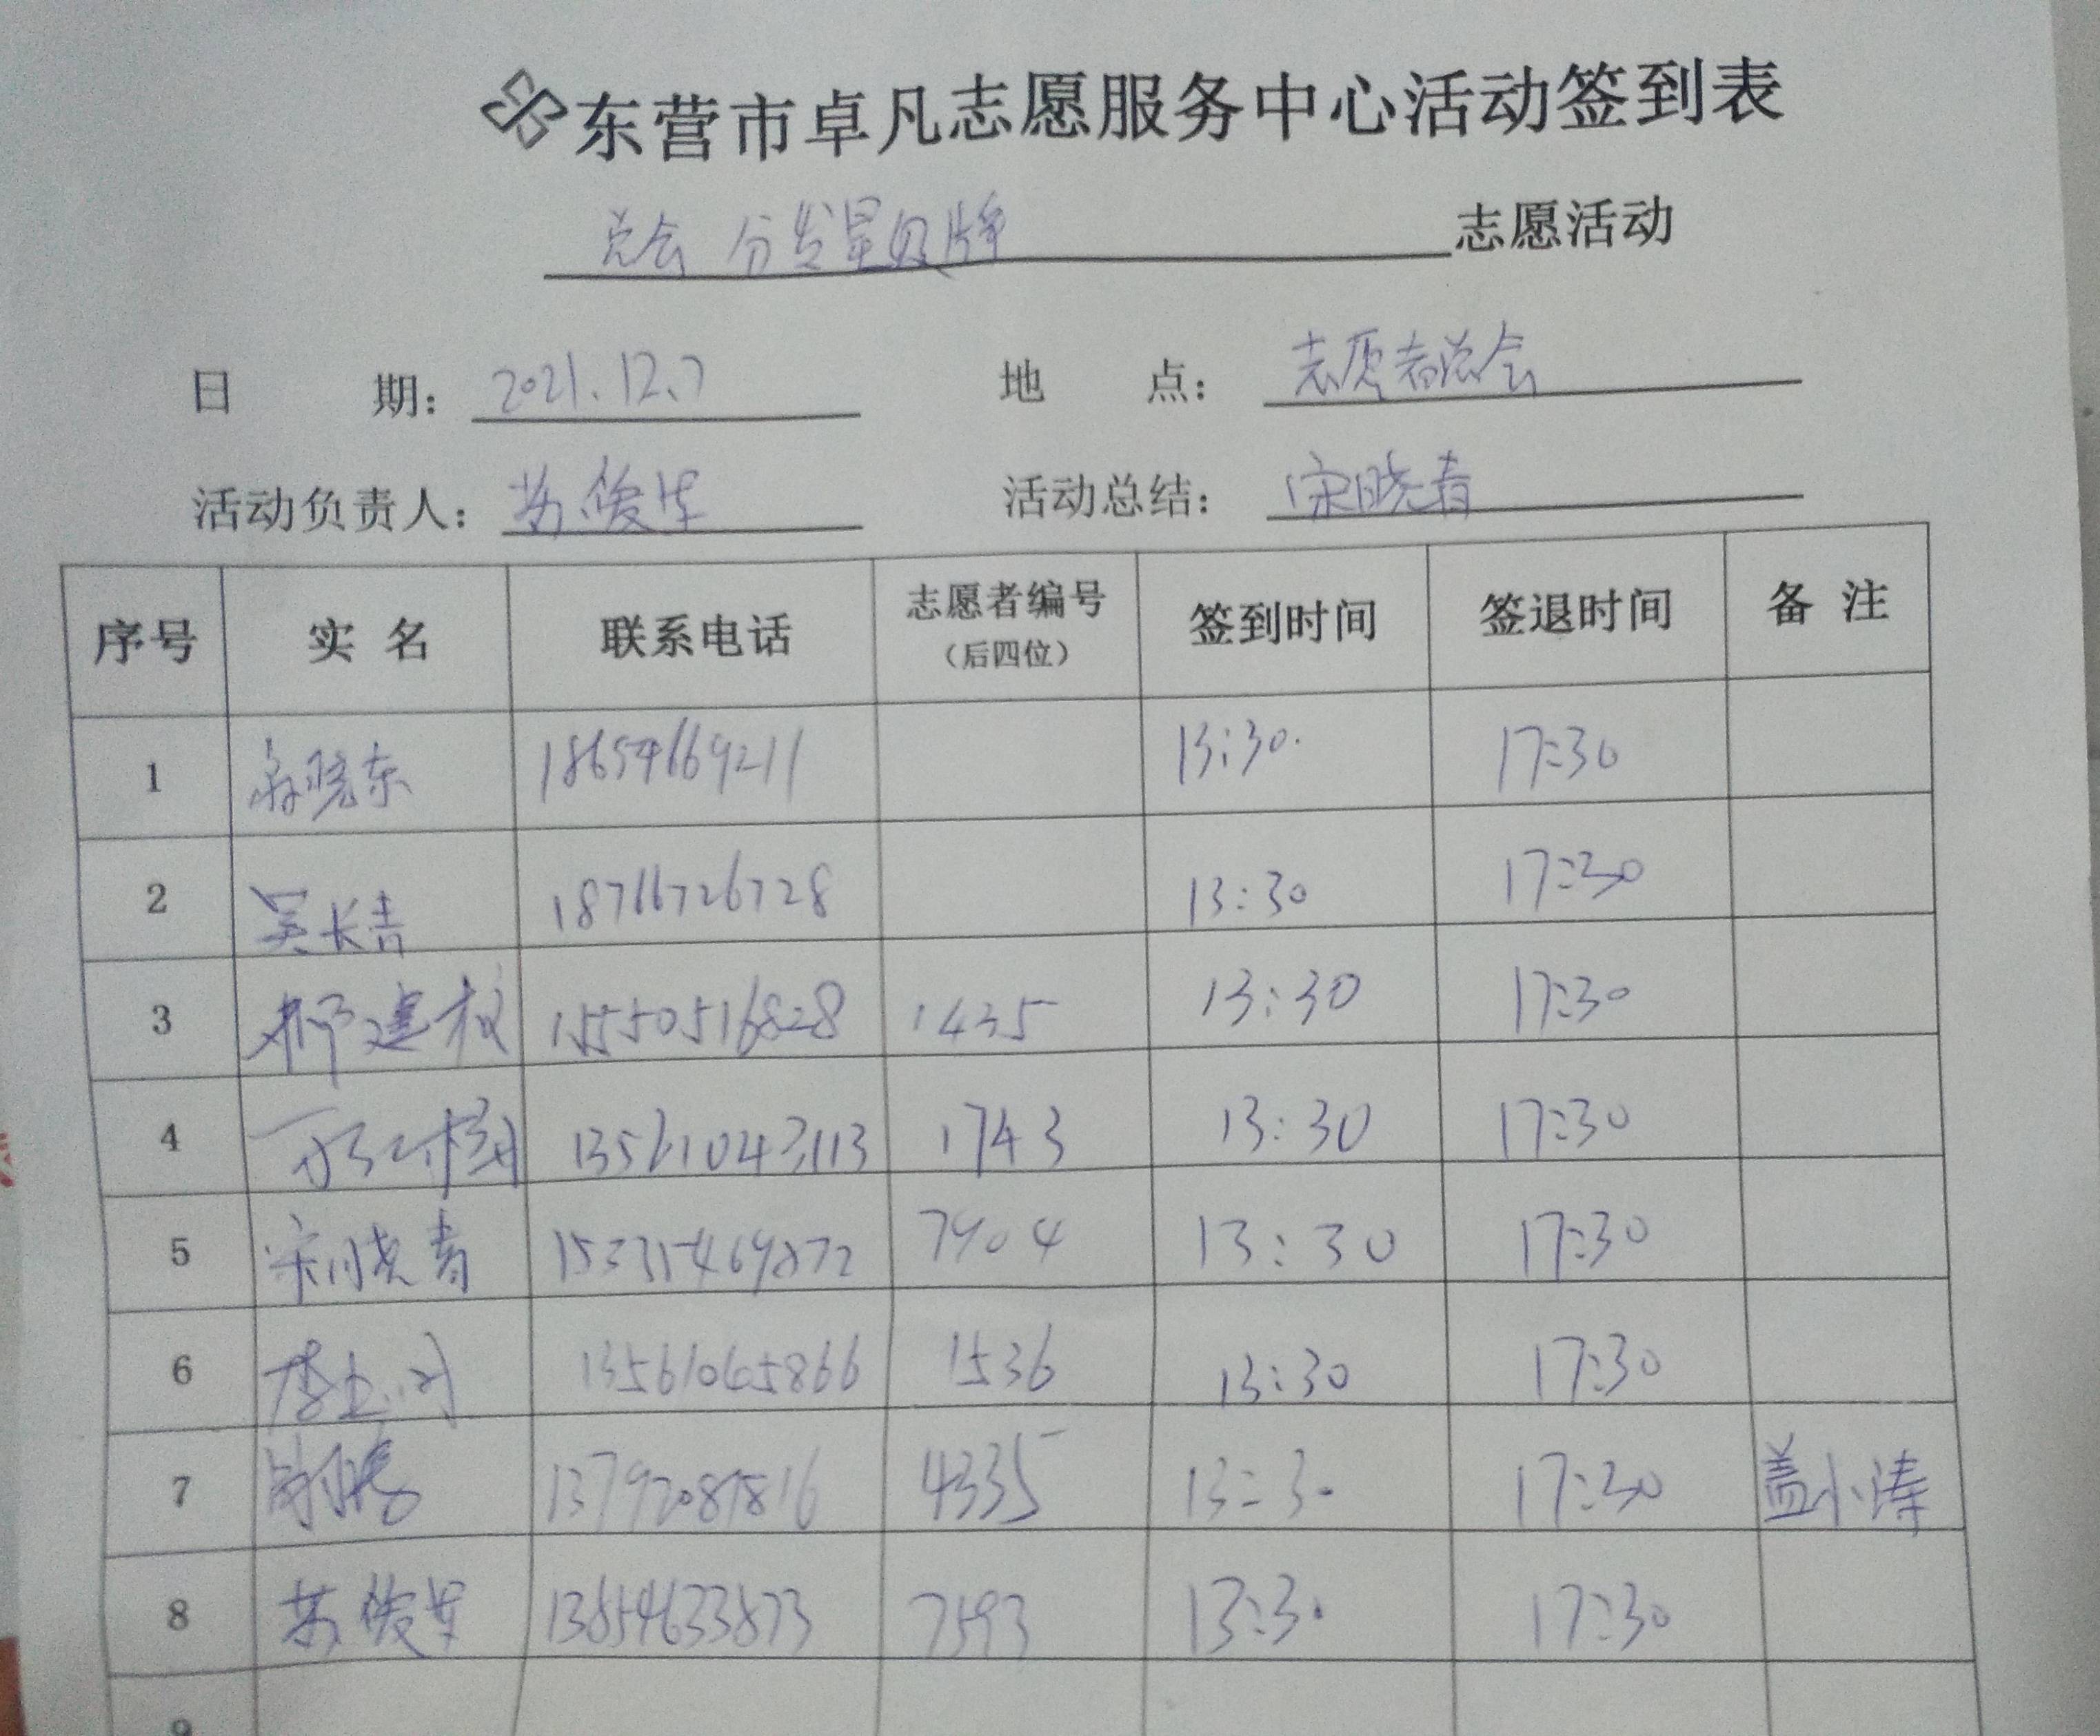 东营市卓凡志愿服务中心活动签到表
总会 分发星级牌 志愿活动
日 期: 2021.12.7 地 点: 志愿者总会
活动负责人: 苏俊华 活动总结: 宋晓青
序号 实 名 联系电话 志愿者编号（后四位） 签到时间 签退时间 备 注
1 晓东 18654669211 13:30 17:30
2 吴长青 18766726728 13:30 17:30
3 建 15550516828 1435 13:30 17:30
4 13561043113 1743 13:30 17:30
5 宋晓青 7904 13:30 17:30
6 李 13561065866 1536 13:30 17:30
7 13792087816 4335 13:30 17:30 盖小涛
8 苏俊华 13854633873 7593 13:30 17:30
9